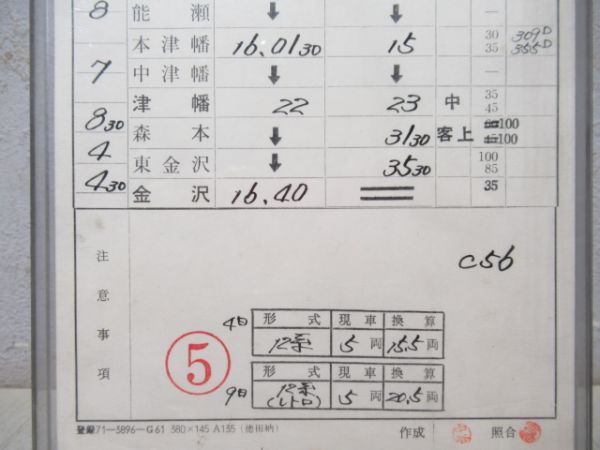 8 能瀬 ↓ ↓ —
本津幡 16.01 30 15 30 35 309D 355D
7 中津幡 ↓ ↓ —
津幡 22 23 中 35 45
8 30 森本 ↓ 31 30 客上 100 100
4 東金沢 ↓ 35 30 100 85
4 30 金沢 16.40 35
注意事項
C56
4日 形式 現車 換算
12系 5両 15.5両
⑤
9日 形式 現車 換算
12系(レトロ) 5両 20.5両
登録71—3896—G61 380×145 A135 (徳田納) 作成 照合